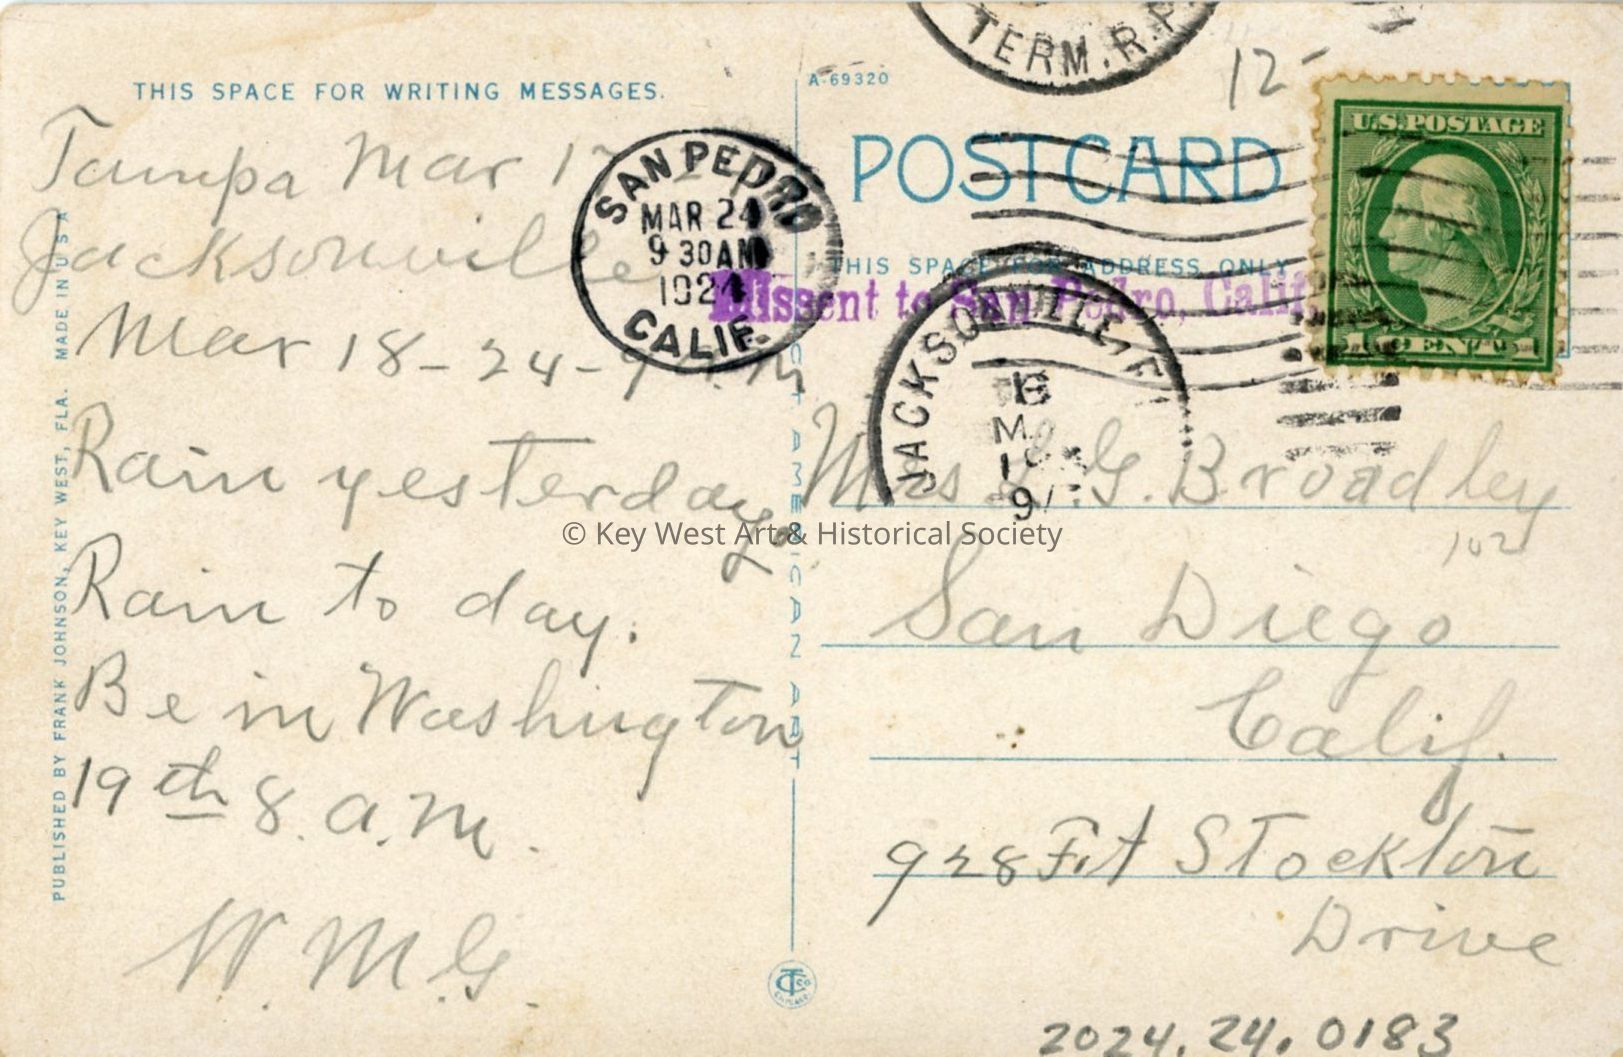 TERM. R.P.
12-
THIS SPACE FOR WRITING MESSAGES.
A-69320
POSTCARD
U.S. POSTAGE
THIS SPACE FOR ADDRESS ONLY
Missent to San Pedro, Calif.
SAN PEDRO
MAR 24
9 30 AM
1924
CALIF.
JACKSONVILLE, F
Tampa Mar 17
Jacksonville
Mar 18-24-
Rain yesterday
Rain to day.
Be in Washington
19th 8. a.m.
W. M. G.
Mrs G. Broadley
102
San Diego
Calif.
928 Ft Stockton
Drive
PUBLISHED BY FRANK JOHNSON, KEY WEST, FLA. MADE IN U S A
C.T. AMERICAN ART
© Key West Art & Historical Society
2024.24.0183